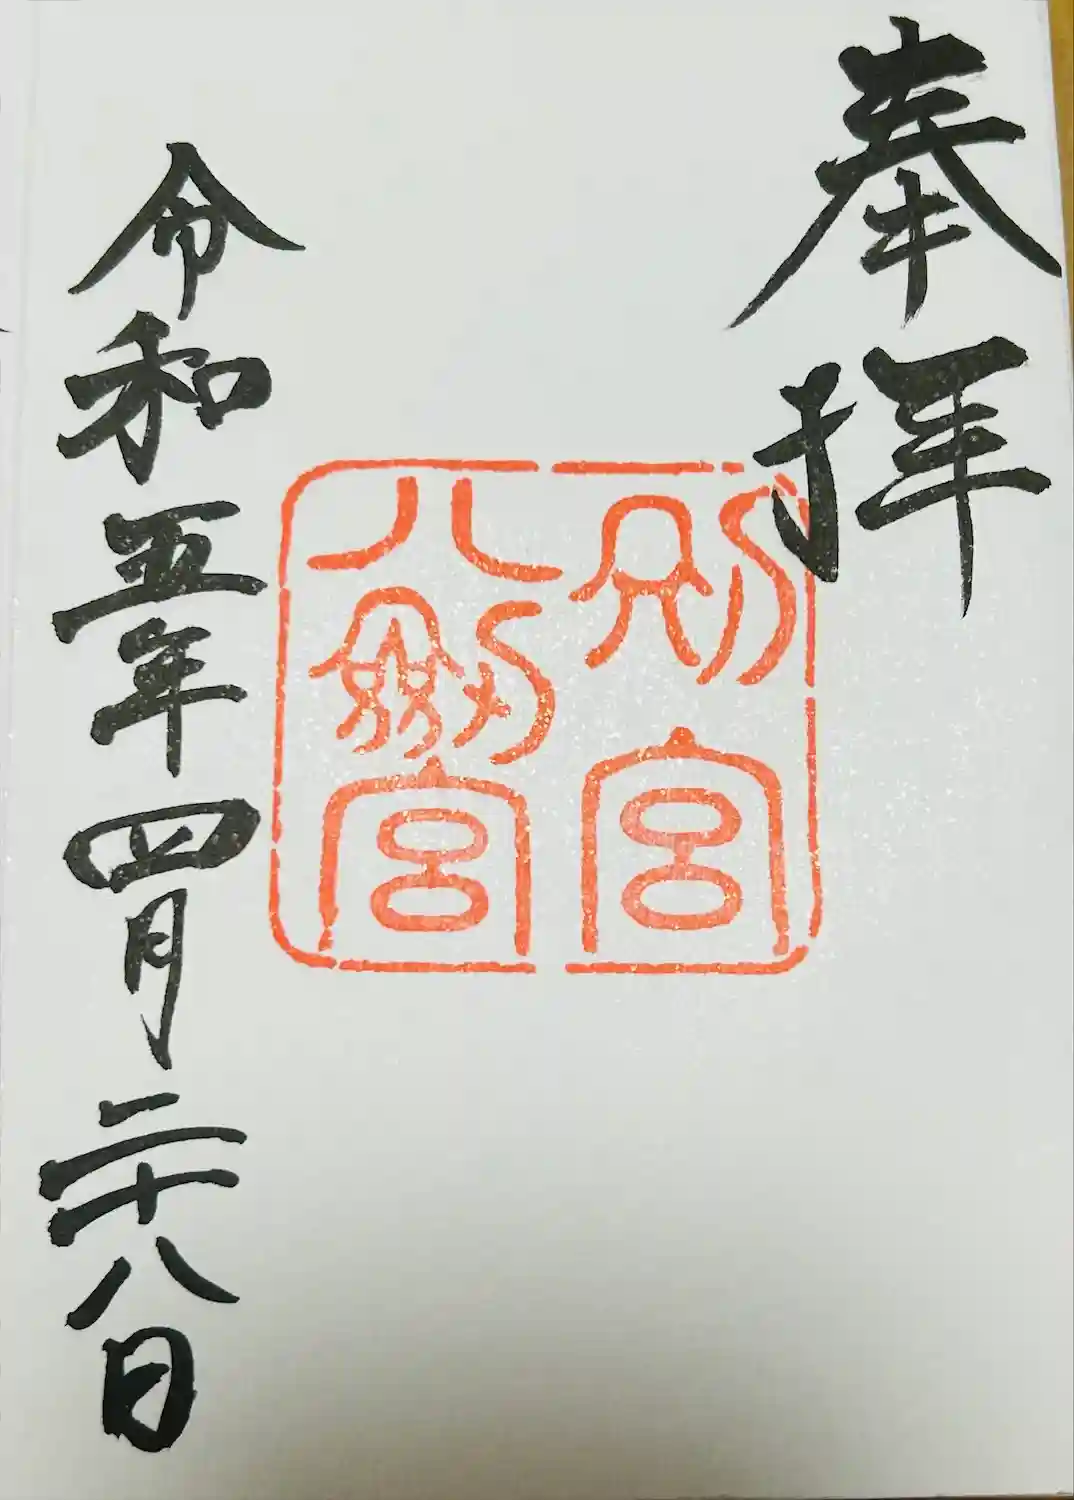 奉拝
別宮
八劒宮
令和五年四月二十八日